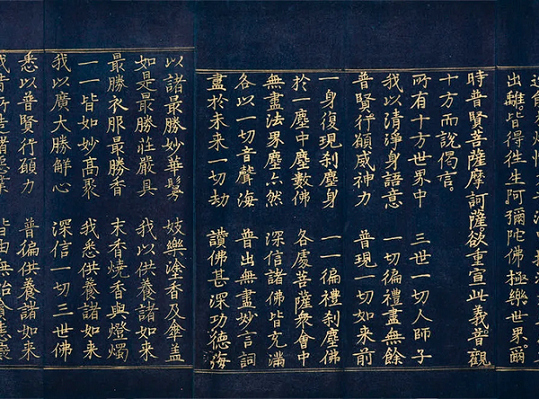 出離。皆得往生阿彌陀佛極樂世界。爾
時普賢菩薩摩訶薩。欲重宣此義。普觀
十方而說偈言。
所有十方世界中　三世一切人師子
我以清淨身語意　一切徧禮盡無餘
普賢行願威神力　普現一切如來前
一身復現剎塵身　一一徧禮剎塵佛
於一塵中塵數佛　各處菩薩眾會中
無盡法界塵亦然　深信諸佛皆充滿
各以一切音聲海　普出無盡妙言詞
盡於未來一切劫　讚佛甚深功德海
以諸最勝妙華鬘　妓樂塗香及傘蓋
如是最勝莊嚴具　我以供養諸如來
最勝衣服最勝香　末香燒香與燈燭
一一皆如妙高聚　我悉供養諸如來
我以廣大勝解心　深信一切三世佛
悉以普賢行願力　普徧供養諸如來